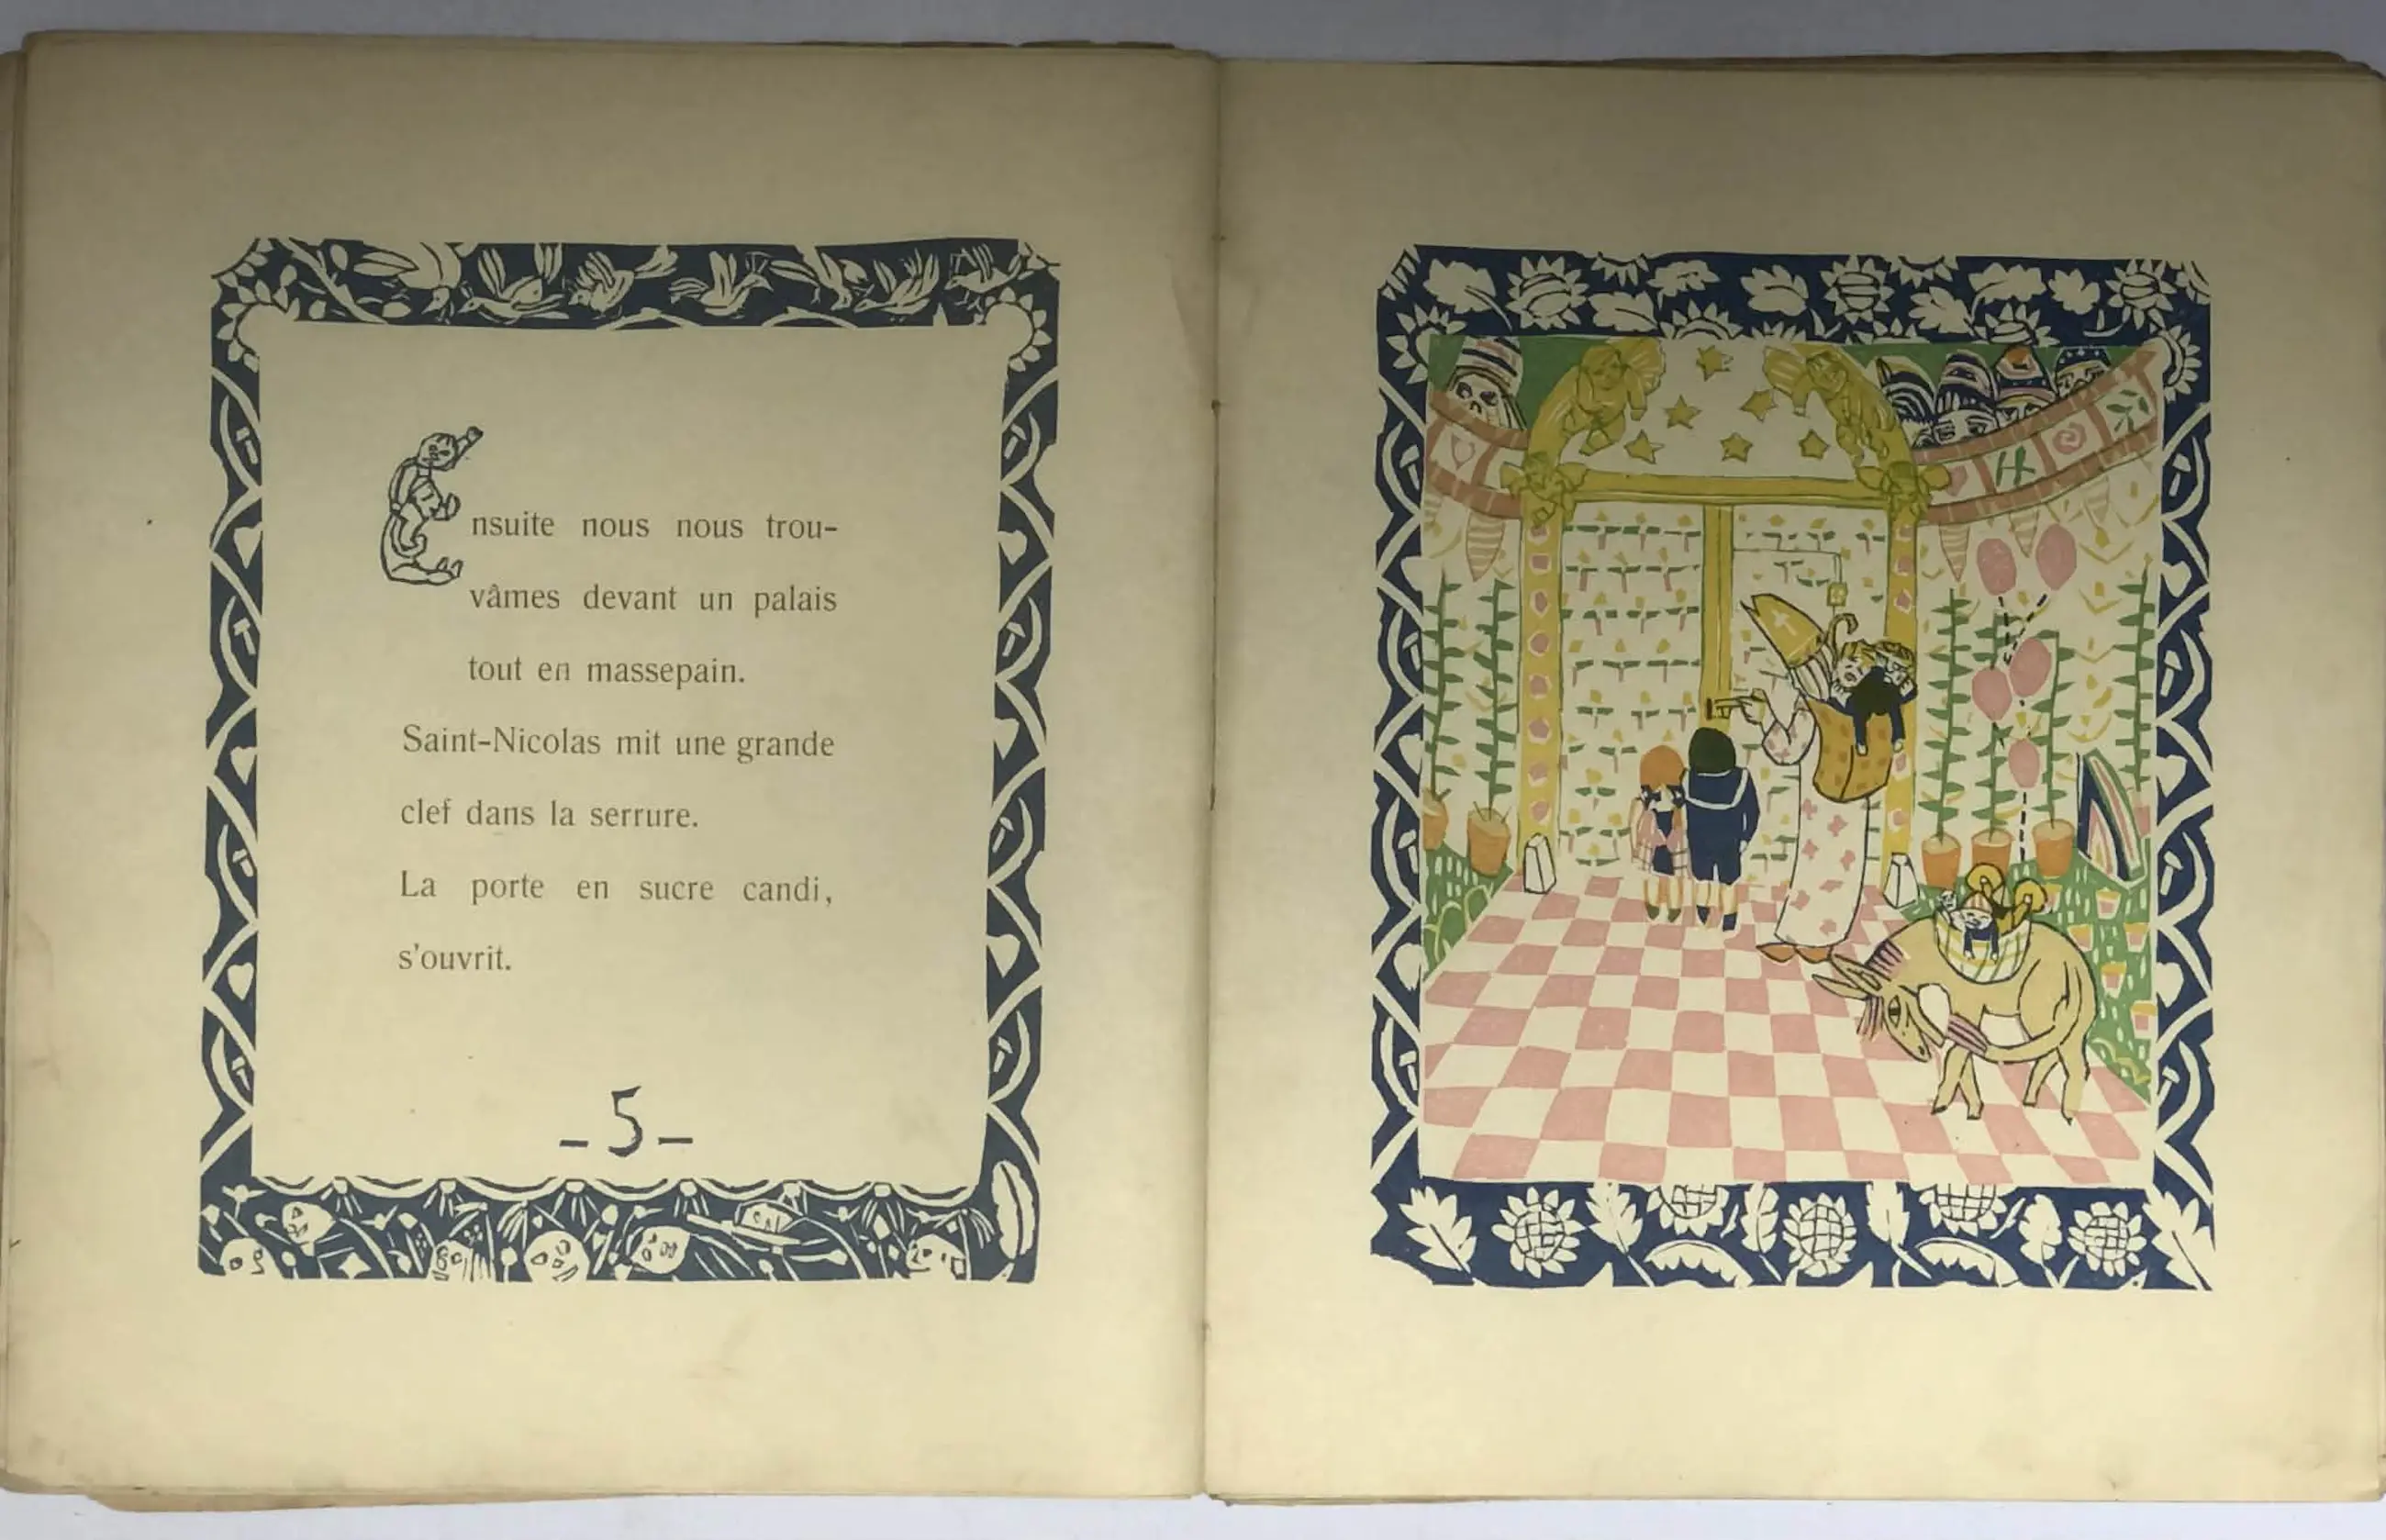 Ensuite nous nous trou-
vâmes devant un palais
tout en massepain.
Saint-Nicolas mit une grande
clef dans la serrure.
La porte en sucre candi,
s'ouvrit.
- 5 -